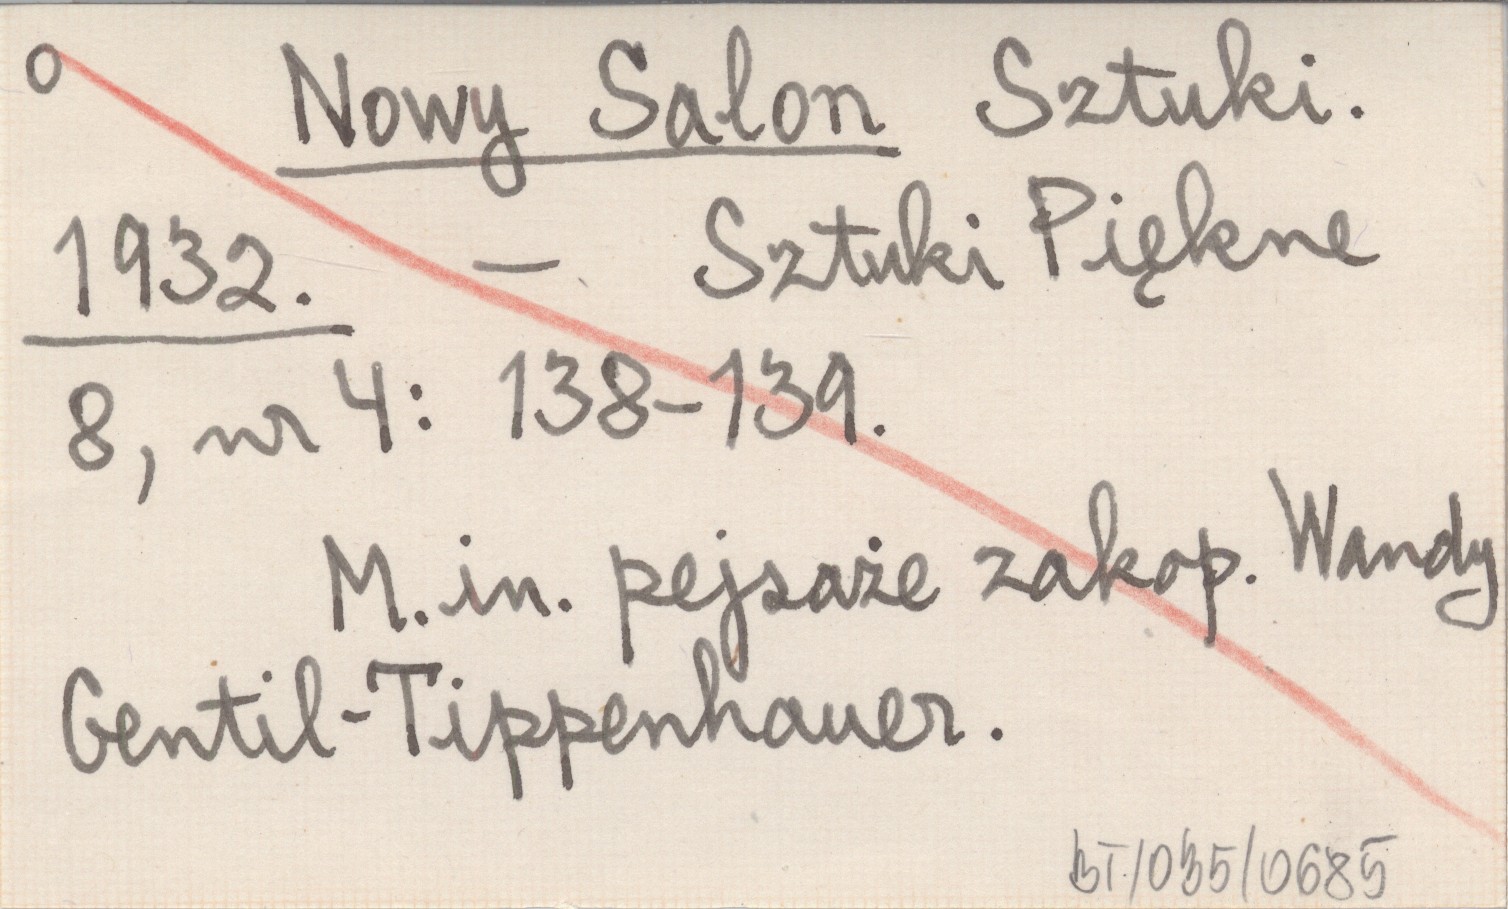 o Nowy Salon Sztuki.
1932. — Sztuki Piękne
8, nr 4: 138-139.
M. in. pejsaże zakop. Wandy
Gentil-Tippenhauer.
BT/035/0685